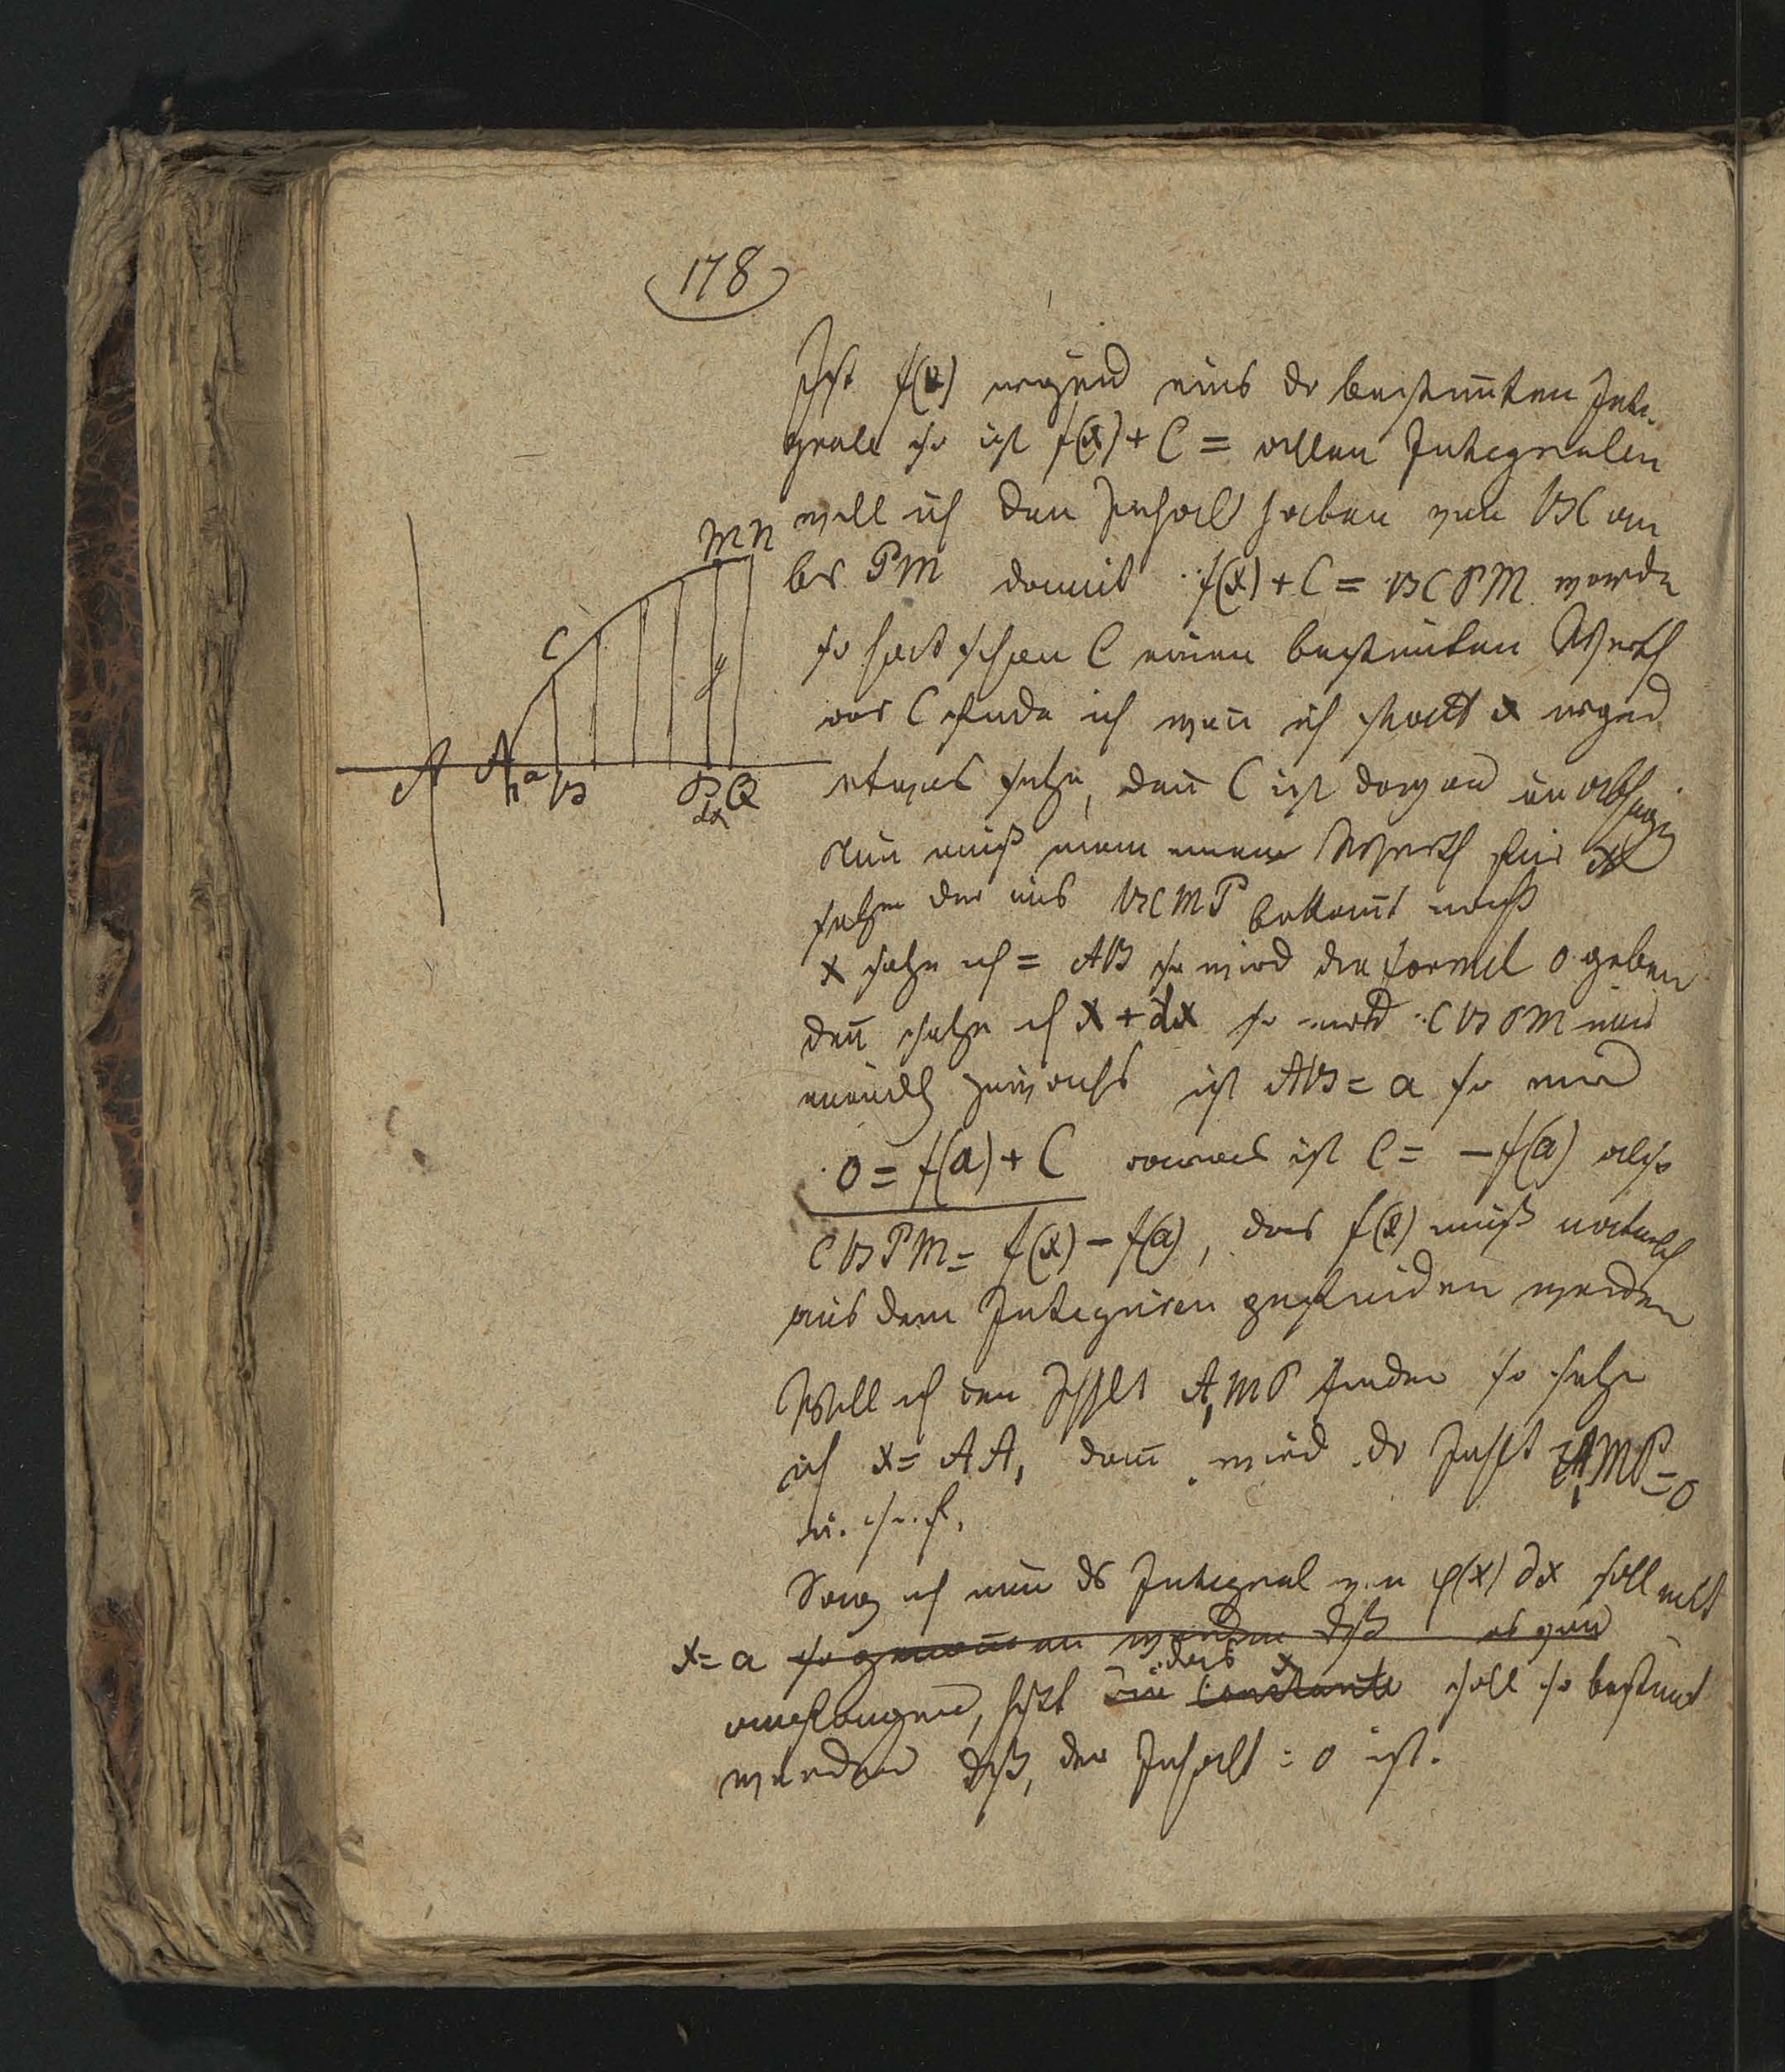 178
Ist f(x) irgend eins der bestim̄ten Inte-
grale so ist f(x) + C = allen Integralen
will ich den Inhalt haben von BC an
bis PM damit f(x) + C = BCPM werde
so hat schon C einen bestim̄ten Werth
das C finde ich wen̄ ich statt x irgend
etwas setze, den̄ C ist davon unabhängig
Nun muß man einen Werth für x
setzen der uns BCMP bekan̄t macht
x setze ich = AB so wird die formel 0 geben
den̄ setze ich x + dx so wird CBPM
unendl ist AB = a so wird
0 = f(a) + C daraus ist C = - f(a) also
CBPM = f(x) - f(a), das f(x) muß natürlich
aus dem Integriren gefunden werden
Will ich den Inhalt A,MP finden so setze
ich x = AA, dan̄ wird der Inhalt A,MP = 0
u. s. f.
Sag ich nun das Integral von φ(x) dx soll mit
x = a so genom̄en werden daß es von
anfangen, heißt die Constante das x soll so bestim̄t
werden daß, der Inhalt = 0 ist.
M N
C
y
A A, a B P Q
dx